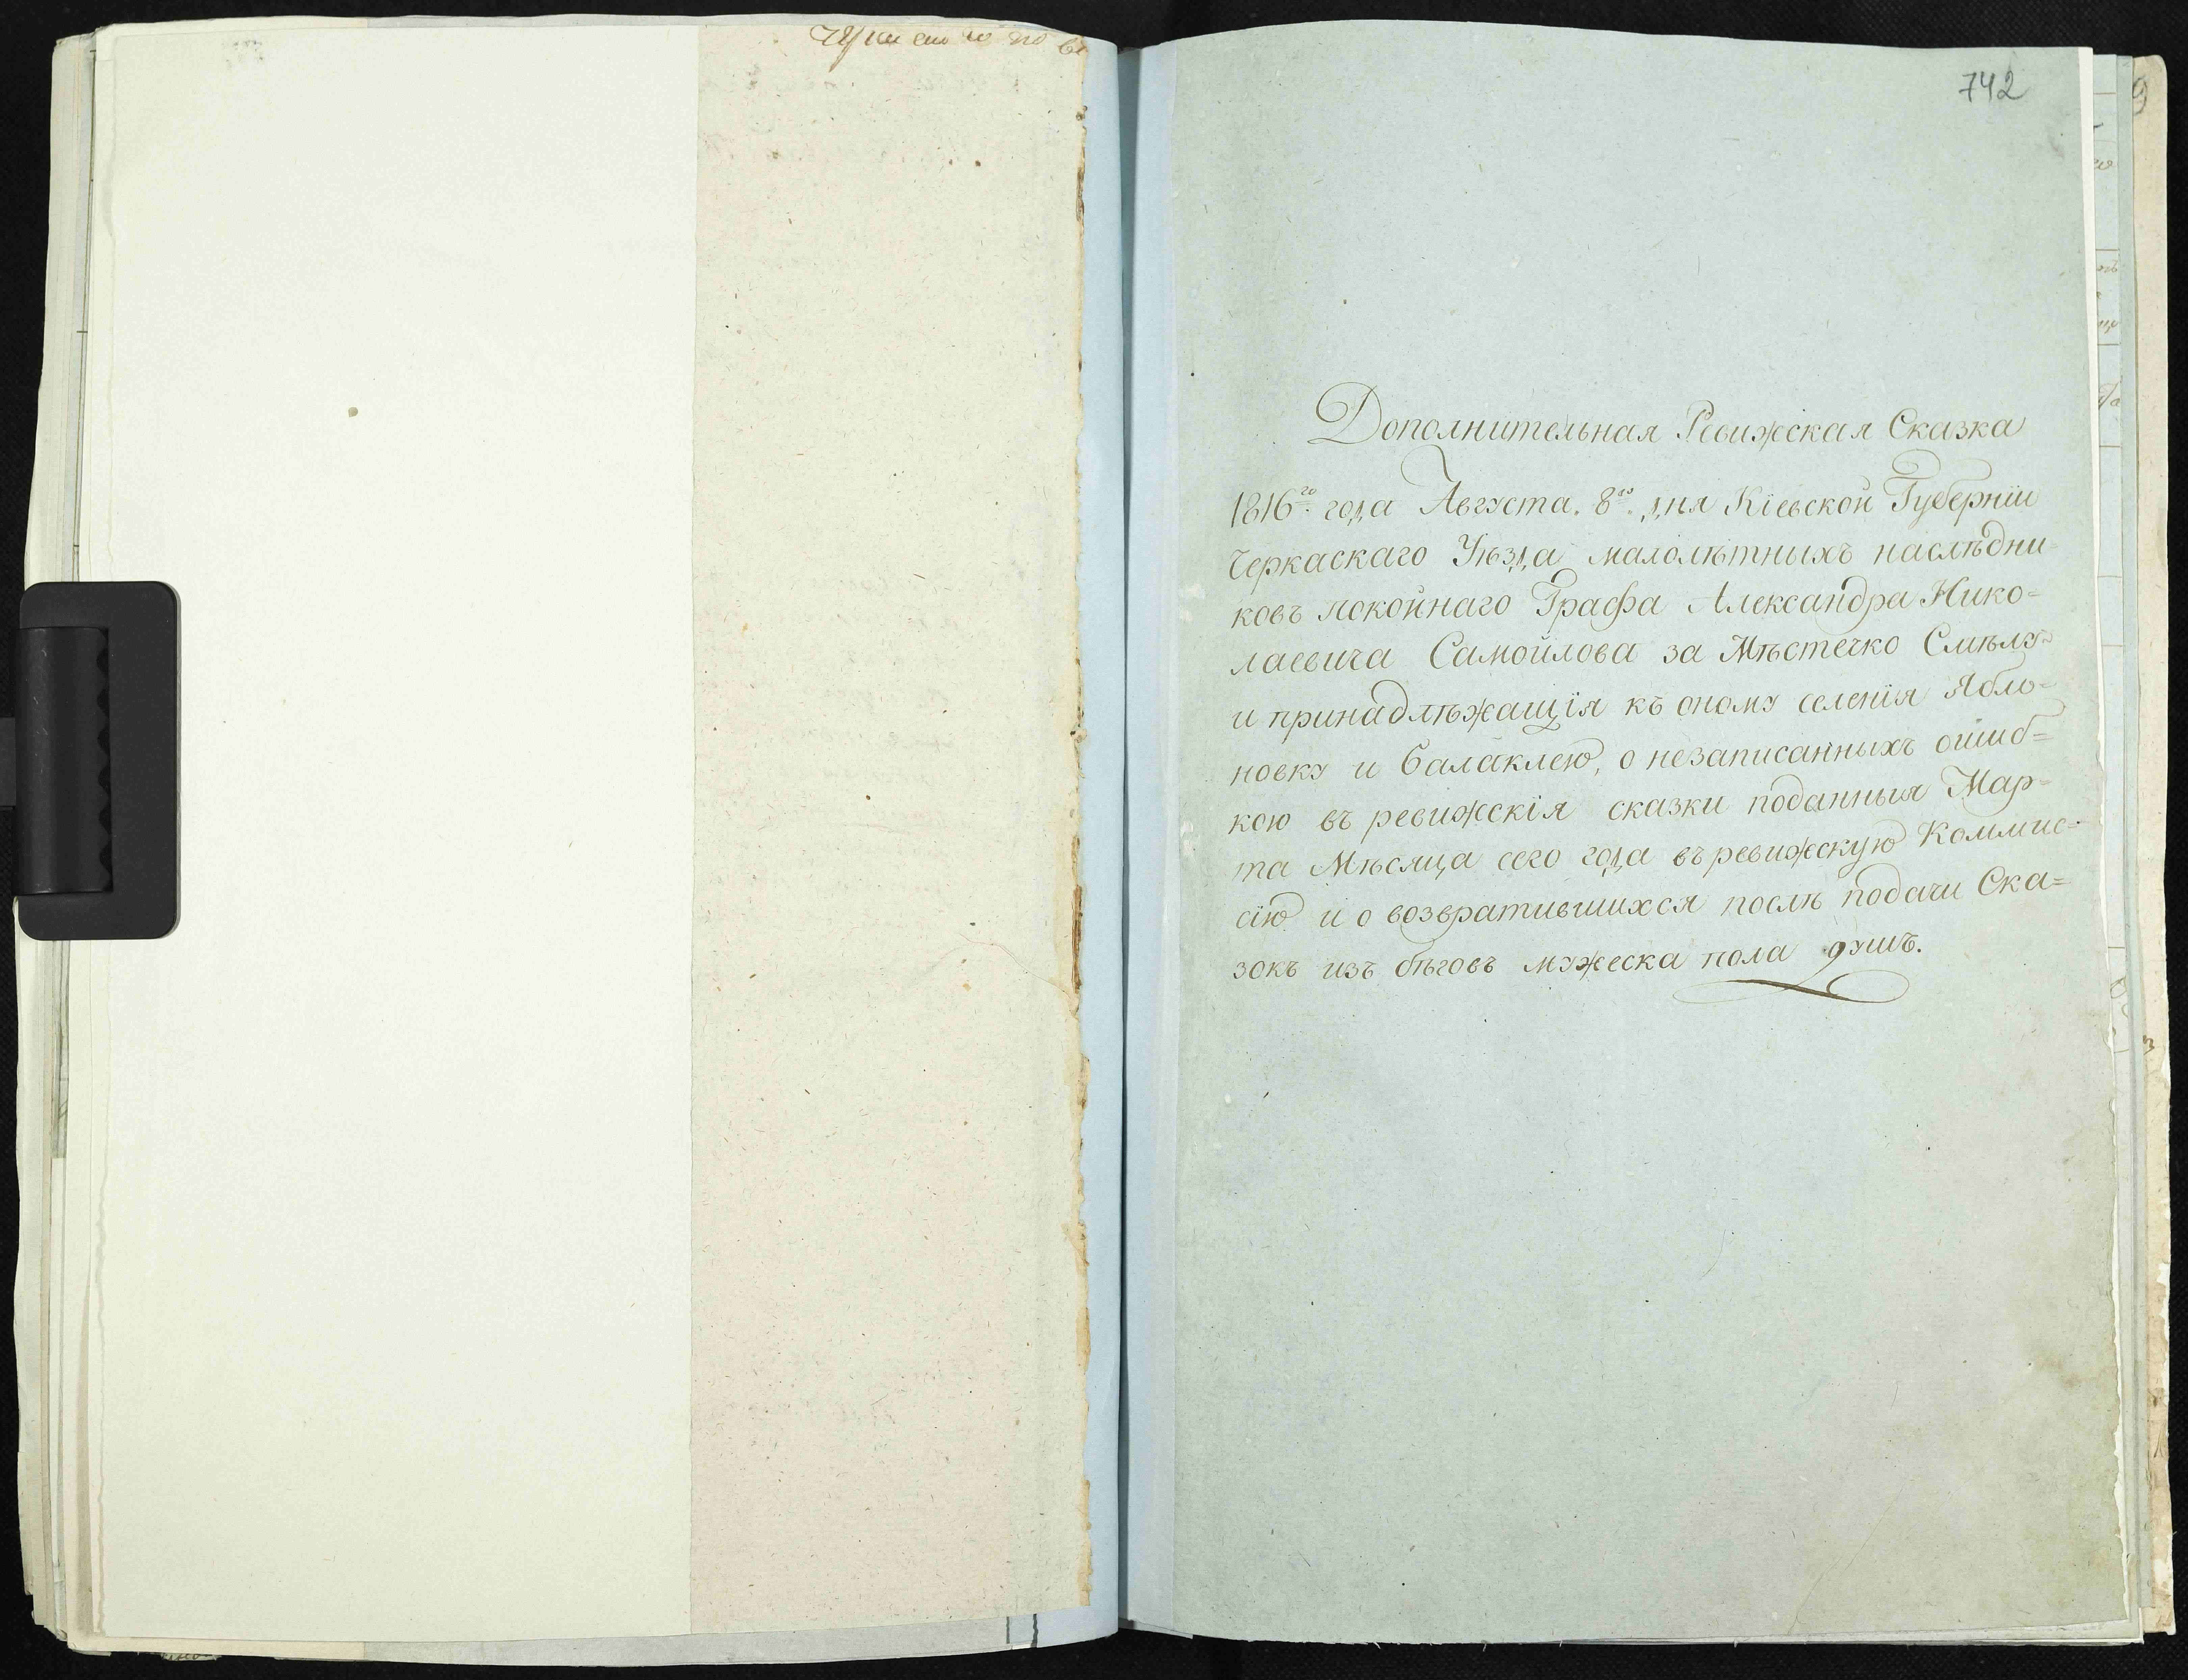 742
Дополнительная Ревижская Сказка
1816го. года Августа. 8го. дня Кіевской Губерніи
Черкаскаго Уѣзда малолѣтныхъ наслѣдни-
ковъ покойнаго Графа Александра Нико=
лаевича Самойлова за Мѣстечко Смѣлу-
и принадлѣжащія къ оному селенія Ябло-
новку и Балаклею, о незаписанныхъ ошиб=
кою въ ревижскія сказки поданныя Мар-
та Мѣсяца сего года въ ревижскую Коммис=
сію и о возвратившихся послѣ подачи Ска=
зокъ изъ бѣговъ мужеска пола душъ.